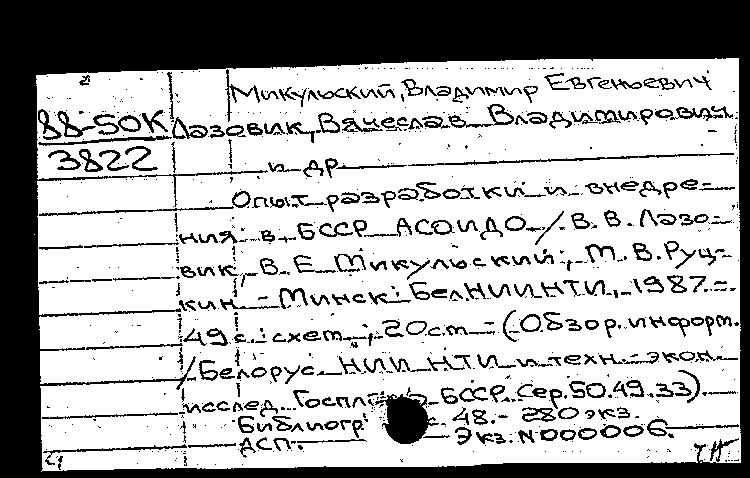 Микульский, Владимир Евгеньевич
88-50К Лазовик, Вячеслав Владимирович
3822 и др.
Опыт разработки и внедре-
ния в БССР АСОИДО / В. В. Лазо-
вик, В. Е. Микульский, М. В. Руц-
кин. - Минск: БелНИИНТИ, 1987. -
49 с.: схем.; 20 см. - (Обзор. информ.
/ Белорус. НИИ НТИ и техн.-экон.
исслед. Госплана БССР. Сер. 50.49.33).
Библиогр с. 48. - 280 экз.
ДСП. Экз. N000006.